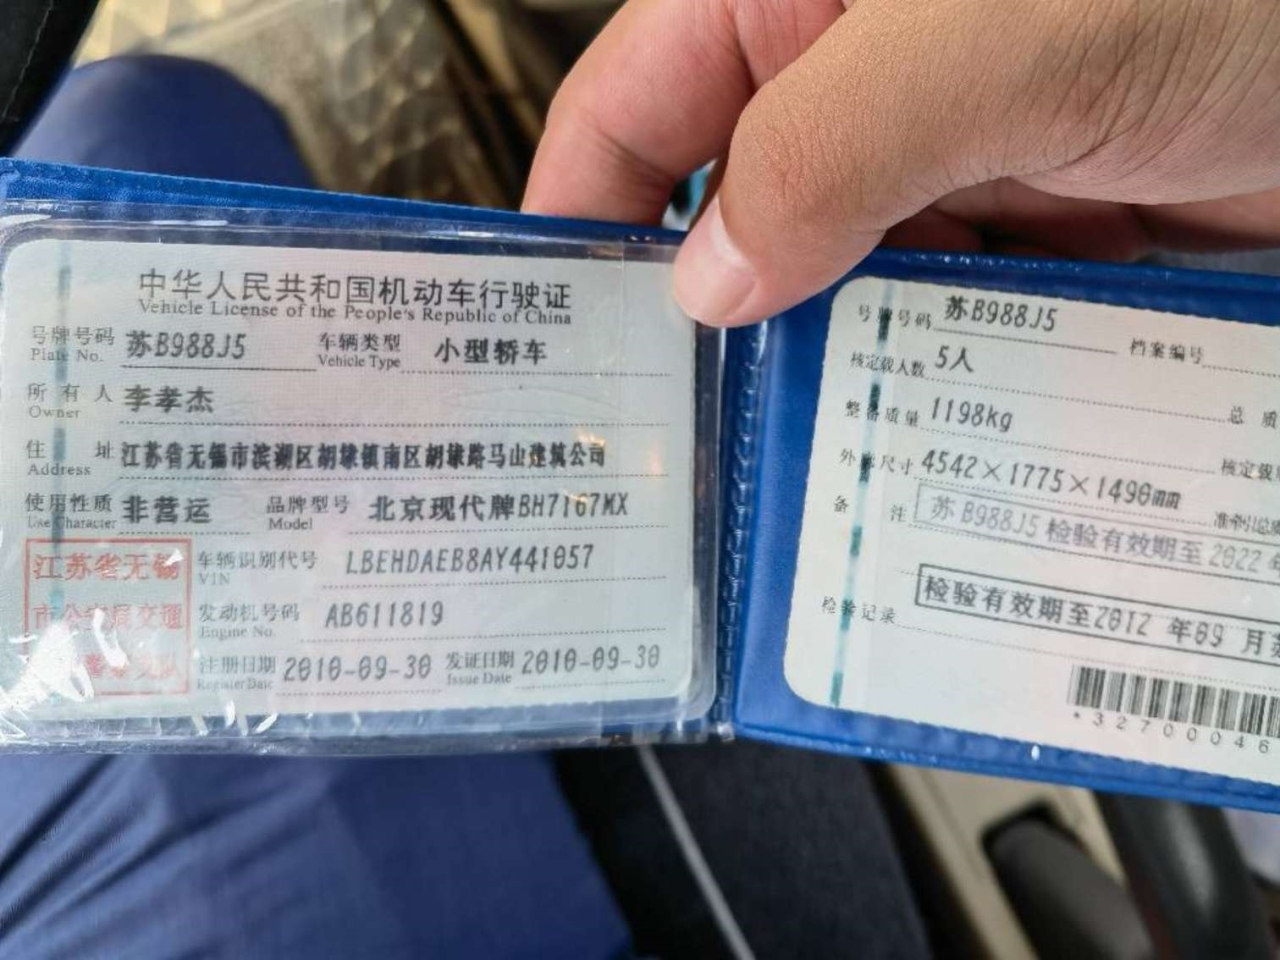 中华人民共和国机动车行驶证
Vehicle License of the People's Republic of China
号牌号码 苏B988J5 车辆类型 小型轿车
Plate No. Vehicle Type
所有人 李孝杰
Owner
住址 江苏省无锡市滨湖区胡埭镇南区胡埭路马山建筑公司
Address
使用性质 非营运 品牌型号 北京现代牌BH7167MX
Use Character Model
江苏省无锡
市公安局交通
车辆识别代号 LBEHDAEB8AY441057
VIN
发动机号码 AB611819
Engine No.
注册日期 2010-09-30 发证日期 2010-09-30
Register Date Issue Date
号牌号码 苏B988J5 档案编号
核定载人数 5人
整备质量 1198kg 总质
外廓尺寸 4542×1775×1490mm 核定载
备注 苏B988J5 检验有效期至 2022 年
检验记录 检验有效期至2012 年09 月
*32700046